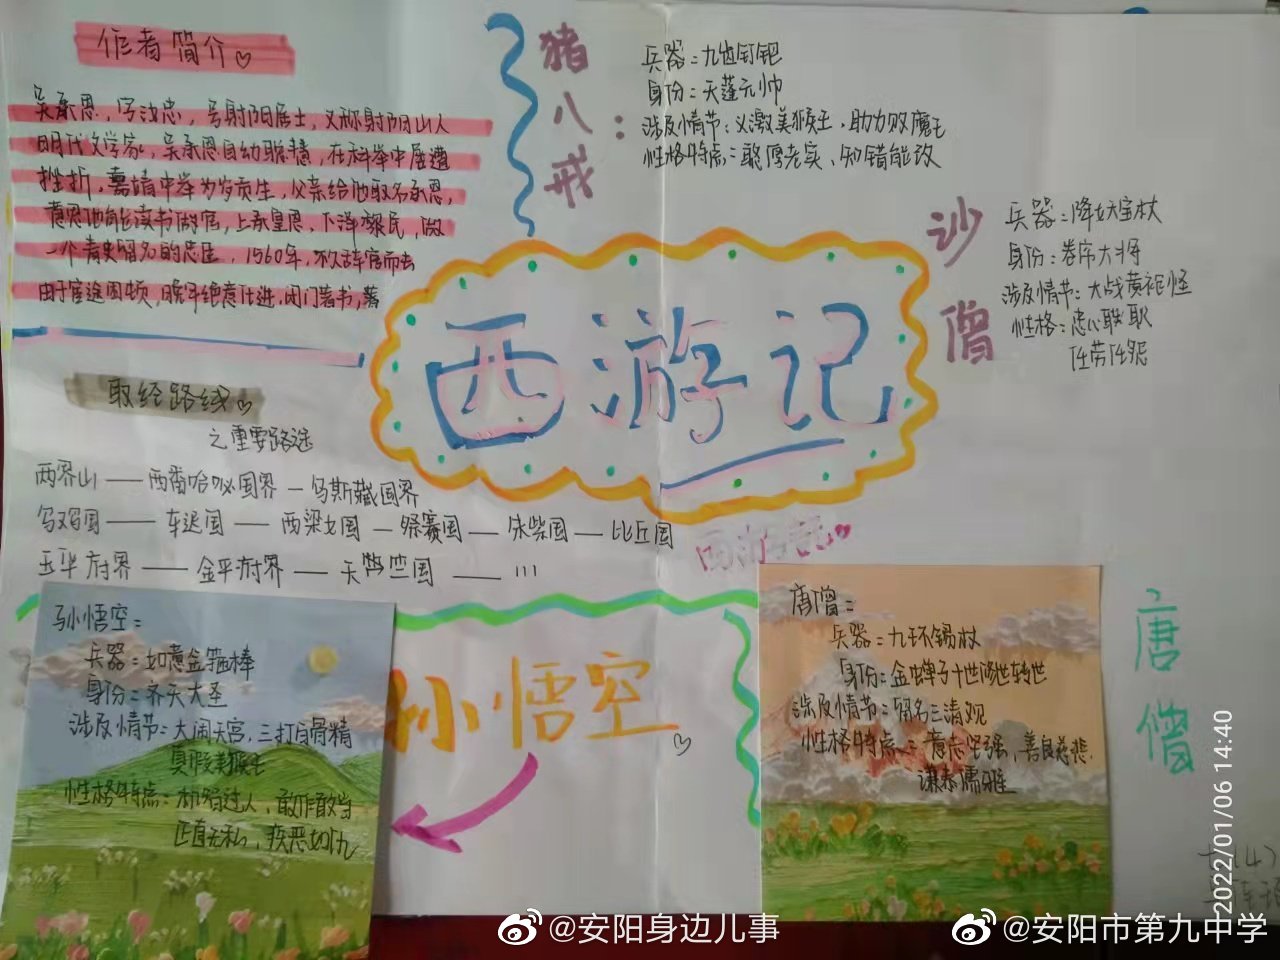 作者简介
吴承恩，字汝忠，号射阳居士，又称射阳山人
明代文学家，吴承恩自幼聪慧，在科举中屡遭
挫折，嘉靖中举为岁贡生，父亲给他取名承恩，
意思他能读书做官，上承皇恩，下泽黎民，做
一个青史留名的忠臣，1560年，不久辞官而去
由于宦途困顿，晚年绝意仕进，闭门著书，著
猪八戒：
兵器：九齿钉钯
身份：天蓬元帅
涉及情节：义激美猴王，助力败魔王
性格特点：憨厚老实、知错能改
沙僧
兵器：降妖宝杖
身份：卷帘大将
涉及情节：大战黄袍怪
性格：忠心耿耿
任劳任怨
西游记
取经路线
之重要路途
两界山——西番哈咇国界—乌斯藏国界
乌鸡国——车迟国——西梁女国—祭赛国——朱紫国——比丘国
玉华府界——金平府界——天竺国——…
西游记
孙悟空：
兵器：如意金箍棒
身份：齐天大圣
涉及情节：大闹天宫，三打白骨精
真假美猴王
性格特点：机智过人，敢作敢当
正直无私，疾恶如仇
孙悟空
唐僧：
兵器：九环锡杖
身份：金蝉子十世修世转世
涉及情节：留名三清观
性格特点：意志坚强，善良慈悲，
谦恭儒雅
唐僧
2022/01/06 14:40
@安阳身边儿事
@安阳市第九中学